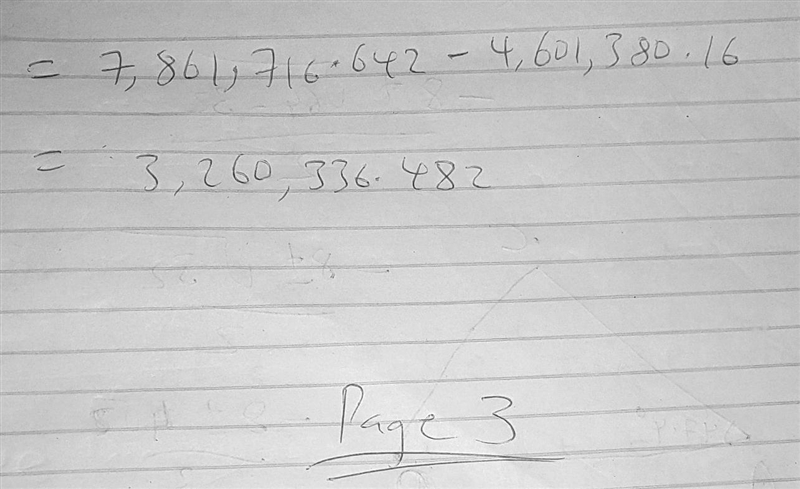 = 7,861,716.642 - 4,601,380.16
= 3,260,336.482
Page 3